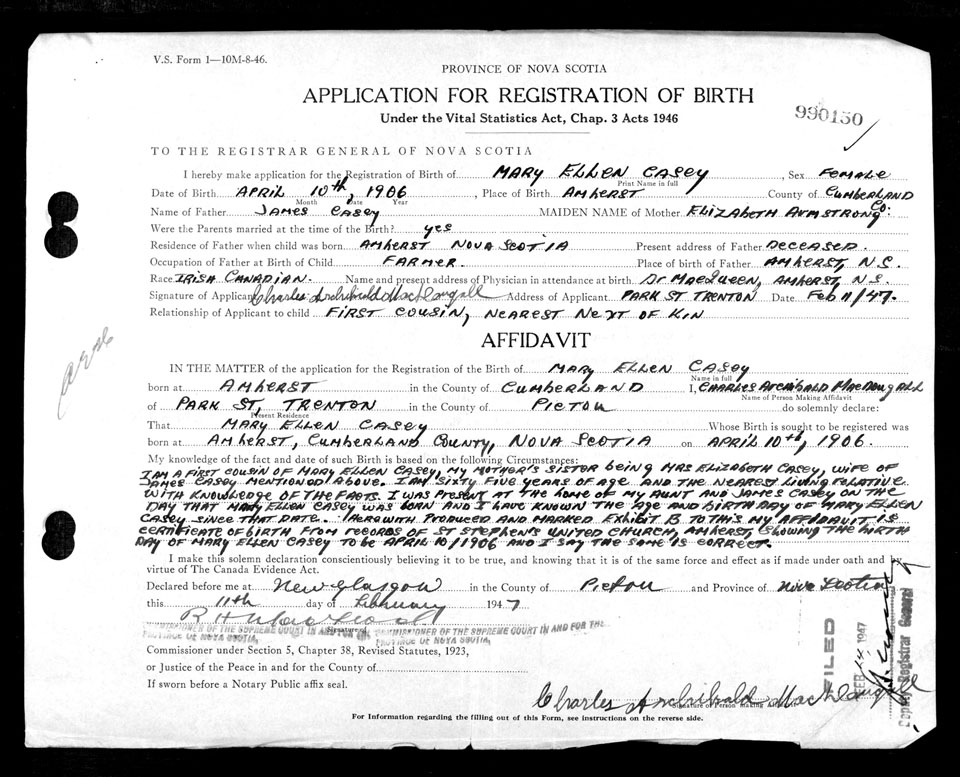 V.S. Form 1—10M-8-46.
PROVINCE OF NOVA SCOTIA
APPLICATION FOR REGISTRATION OF BIRTH
990150
Under the Vital Statistics Act, Chap. 3 Acts 1946
TO THE REGISTRAR GENERAL OF NOVA SCOTIA
I hereby make application for the Registration of Birth of MARY ELLEN CASEY, Sex FEMALE
Print Name in full
Date of Birth APRIL 10th, 1906, Place of Birth AMHERST County of CUMBERLAND
Month Date Year
Name of Father JAMES CASEY MAIDEN NAME of Mother ELIZABETH ARMSTRONG Co:
Were the Parents married at the time of the Birth? yes
Residence of Father when child was born AMHERST NOVA SCOTIA Present address of Father DECEASED.
Occupation of Father at Birth of Child FARMER. Place of birth of Father AMHERST, N.S.
Race IRISH CANADIAN. Name and present address of Physician in attendance at birth Dr MacQueen, AMHERST, N.S.
Signature of Applicant Charles Archibald MacDougall Address of Applicant PARK ST TRENTON Date Feb 11/47.
Relationship of Applicant to child FIRST COUSIN, NEAREST NEXT OF KIN
AFFIDAVIT
IN THE MATTER of the application for the Registration of the Birth of MARY ELLEN CASEY
Name in full
born at AMHERST in the County of CUMBERLAND I, CHARLES ARCHIBALD MACDOUGALL
Name of Person Making Affidavit
of PARK ST, TRENTON in the County of PICTOU do solemnly declare:
Present Residence
That MARY ELLEN CASEY Whose Birth is sought to be registered was
born at AMHERST, CUMBERLAND COUNTY, NOVA SCOTIA on APRIL 10th, 1906.
My knowledge of the fact and date of such Birth is based on the following Circumstances:
I AM A FIRST COUSIN OF MARY ELLEN CASEY, MY MOTHER'S SISTER BEING MRS ELIZABETH CASEY, WIFE OF
JAMES CASEY MENTIONED ABOVE. I AM SIXTY FIVE YEARS OF AGE AND THE NEAREST LIVING RELATIVE
WITH KNOWLEDGE OF THE FACTS. I WAS PRESENT AT THE HOME OF MY AUNT AND JAMES CASEY ON THE
DAY THAT MARY ELLEN CASEY WAS BORN AND I HAVE KNOWN THE AGE AND BIRTHDAY OF MARY ELLEN
CASEY SINCE THAT DATE. HEREWITH PRODUCED AND MARKED EXHIBIT B TO THIS MY AFFIDAVIT IS
CERTIFICATE OF BIRTH FROM RECORDS OF ST STEPHEN'S UNITED CHURCH, AMHERST, SHOWING THE BIRTH
DAY OF MARY ELLEN CASEY TO BE APRIL 10/1906 AND I SAY THE SAME IS CORRECT.
I make this solemn declaration conscientiously believing it to be true, and knowing that it is of the same force and effect as if made under oath and by
virtue of The Canada Evidence Act.
Declared before me at New Glasgow in the County of Pictou and Province of Nova Scotia
this 11th day of February 1947
Signature of
COMMISSIONER OF THE SUPREME COURT IN AND FOR THE
PROVINCE OF NOVA SCOTIA
Commissioner under Section 5, Chapter 38, Revised Statutes, 1923,
or Justice of the Peace in and for the County of
If sworn before a Notary Public affix seal.
FILED
1947
Deputy Registrar General
Charles Archibald MacDougall
Signature of Person Making Affidavit
For Information regarding the filling out of this Form, see instructions on the reverse side.